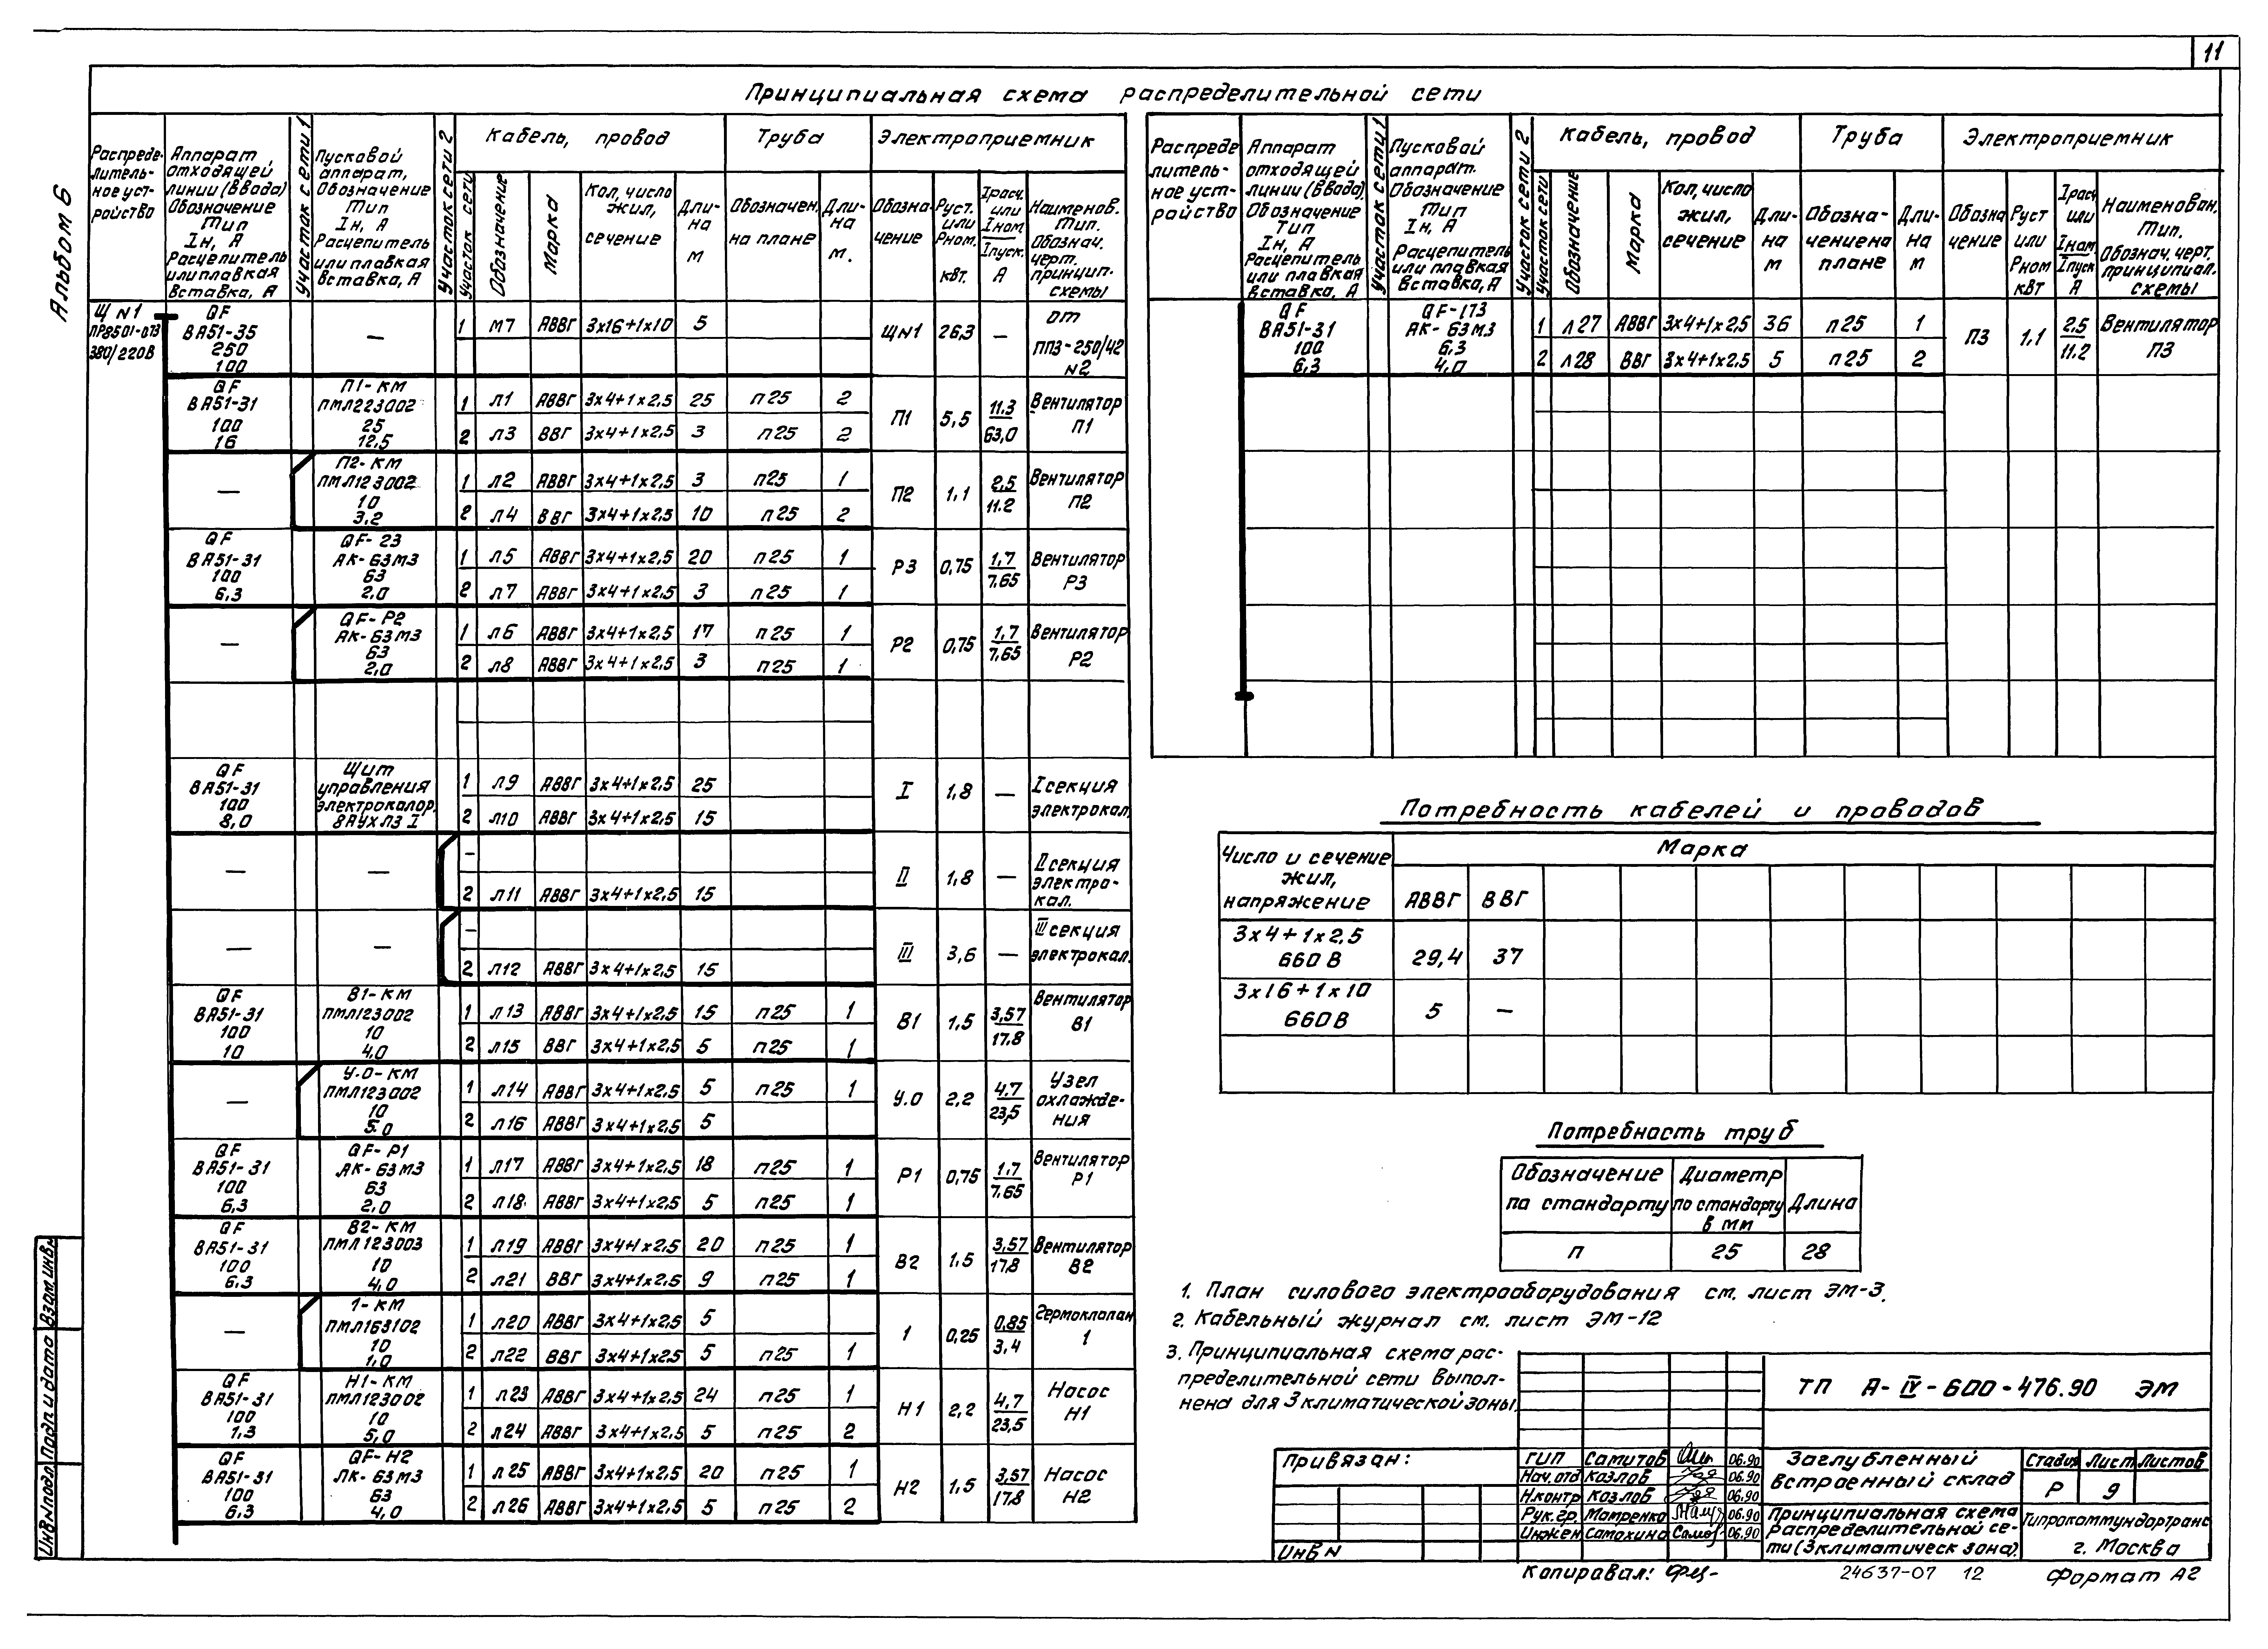 11
Альбом 6
Принципиальная схема распределительной сети
Распреде-
литель-
ное уст-
ройство
Аппарат
отходящей
линии (ввода)
Обозначение
Тип
Iн, А
Расцепитель
или плавкая
вставка, А
Участок сети 1
Пусковой
аппарат,
Обозначение
Тип
Iн, А
Расцепитель
или плавкая
вставка, А
Участок сети 2
Кабель, провод
Участок сети
Обозначение
Марка
Кол, число
жил,
сечение
Дли-
на
м
Труба
Обозначен.
на плане
Дли-
на
м.
Электроприемник
Обозна-
чение
Руст.
или
Рном.
квт.
Iрасч.
или
Iном
Iпуск.
А
Наименов.
Тип.
Обознач.
черт.
принцип.
схемы
Щ N1
ПР8501-073
380/220В
QF ВА51-35 250 100 — 1 М7 АВВГ 3х16+1х10 5 ЩN1 26,3 — от ППЗ-250/42 N2
QF ВА51-31 100 16 П1-КМ ПМЛ223002 25 12,5 1 Л1 АВВГ 3х4+1х2,5 25 п25 2 П1 5,5 11,3 63,0 Вентилятор П1
2 Л3 ВВГ 3х4+1х2,5 3 п25 2
— П2-КМ ПМЛ123002 10 3,2 1 Л2 АВВГ 3х4+1х2,5 3 п25 1 П2 1,1 2,5 11.2 Вентилятор П2
2 Л4 ВВГ 3х4+1х2,5 10 п25 2
QF ВА51-31 100 6,3 QF-23 АК-63М3 63 2,0 1 Л5 АВВГ 3х4+1х2,5 20 п25 1 Р3 0,75 1,7 7,65 Вентилятор Р3
2 Л7 АВВГ 3х4+1х2,5 3 п25 1
— QF-Р2 АК-63М3 63 2,0 1 Л6 АВВГ 3х4+1х2,5 17 п25 1 Р2 0,75 1,7 7,65 Вентилятор Р2
2 Л8 АВВГ 3х4+1х2,5 3 п25 1
QF ВА51-31 100 8,0 Щит управления электрокалор. 8АУХЛЗ I 1 Л9 АВВГ 3х4+1х2,5 25 I 1,8 — I секция электрокал.
2 Л10 АВВГ 3х4+1х2,5 15
— — — II 1,8 — II секция электро- кал.
2 Л11 АВВГ 3х4+1х2,5 15
— — — III 3,6 — III секция электрокал.
2 Л12 АВВГ 3х4+1х2,5 15
QF ВА51-31 100 10 В1-КМ ПМЛ123002 10 4,0 1 Л13 АВВГ 3х4+1х2,5 15 п25 1 В1 1,5 3,57 17.8 Вентилятор В1
2 Л15 ВВГ 3х4+1х2,5 5 п25 1
— У.О-КМ ПМЛ123002 10 5.0 1 Л14 АВВГ 3х4+1х2,5 5 п25 1 У.О 2,2 4,7 23,5 Узел охлажде- ния
2 Л16 АВВГ 3х4+1х2,5 5
QF ВА51-31 100 6,3 QF-Р1 АК-63М3 63 2,0 1 Л17 АВВГ 3х4+1х2,5 18 п25 1 Р1 0,75 1.7 7.65 Вентилятор Р1
2 Л18 АВВГ 3х4+1х2,5 5 п25 1
QF ВА51-31 100 6.3 В2-КМ ПМЛ123003 10 4,0 1 Л19 АВВГ 3х4+1х2,5 20 п25 1 В2 1,5 3,57 17,8 Вентилятор В2
2 Л21 ВВГ 3х4+1х2,5 9 п25 1
— 1-КМ ПМЛ163102 10 1,0 1 Л20 АВВГ 3х4+1х2,5 5 1 0,25 0,85 3,4 Гермоклапан 1
2 Л22 ВВГ 3х4+1х2,5 5 п25 1
QF ВА51-31 100 1,3 Н1-КМ ПМЛ123002 10 5,0 1 Л23 АВВГ 3х4+1х2,5 24 п25 1 Н1 2,2 4,7 23,5 Насос Н1
2 Л24 АВВГ 3х4+1х2,5 5 п25 2
QF ВА51-31 100 6.3 QF-Н2 ЛК-63М3 63 4,0 1 Л25 АВВГ 3х4+1х2,5 20 п25 1 Н2 1,5 3,57 17,8 Насос Н2
2 Л26 АВВГ 3х4+1х2,5 5 п25 2
Распреде
литель-
ное уст-
ройство
Аппарат
отходящей
линии (ввода).
Обозначение
Тип
Iн, А
Расцепитель
или плавкая
вставка, А
Участок сети 1
Пусковой
аппарат.
Обозначение
Тип
Iн, А
Расцепитель
или плавкая
вставка, А
Участок сети 2
Кабель, провод
Участок сети
Обозначение
Марка
Кол, число
жил,
сечение
Дли-
на
м
Труба
Обозна-
чение на
плане
Дли-
на
м
Электроприемник
Обозна
чение
Руст
или
Рном
квт
Iрасч.
или
Iном.
Iпуск
А
Наименован.
Тип.
Обознач. черт.
принципиал.
схемы
QF ВА51-31 100 6,3 QF-173 АК-63М3 6,3 4,0 1 Л27 АВВГ 3х4+1х2,5 36 п25 1 П3 1,1 2,5 11.2 Вентилятор П3
2 Л28 ВВГ 3х4+1х2,5 5 п25 2
Потребность кабелей и проводов
Число и сечение
жил,
напряжение
Марка
АВВГ ВВГ
3х4+1х2,5
660 В 29,4 37
3х16+1х10
660В 5 —
Потребность труб
Обозначение
по стандарту
Диаметр
по стандарту
в мм
Длина
п 25 28
1. План силового электрооборудования см. лист ЭМ-3.
2. Кабельный журнал см. лист ЭМ-12
3. Принципиальная схема рас-
пределительной сети выпол-
нена для 3 климатической зоны.
ТП А-IV-600-476.90 ЭМ
Привязан:
Инв N
ГИП Самитов 06.90
Нач.отд Козлов 06.90
Н.контр Козлов 06.90
Рук.гр. Матренко 06.90
Инжен Самохина 06.90
Заглубленный
встроенный склад
Стадия Лист Листов
Р 9
Принципиальная схема
распределительной се-
ти (3 климатическ зона).
Гипрокоммундортранс
г. Москва
Копировал:
24637-07 12
Формат А2
Взам.инвN
Подп и дата
Инв N подл.